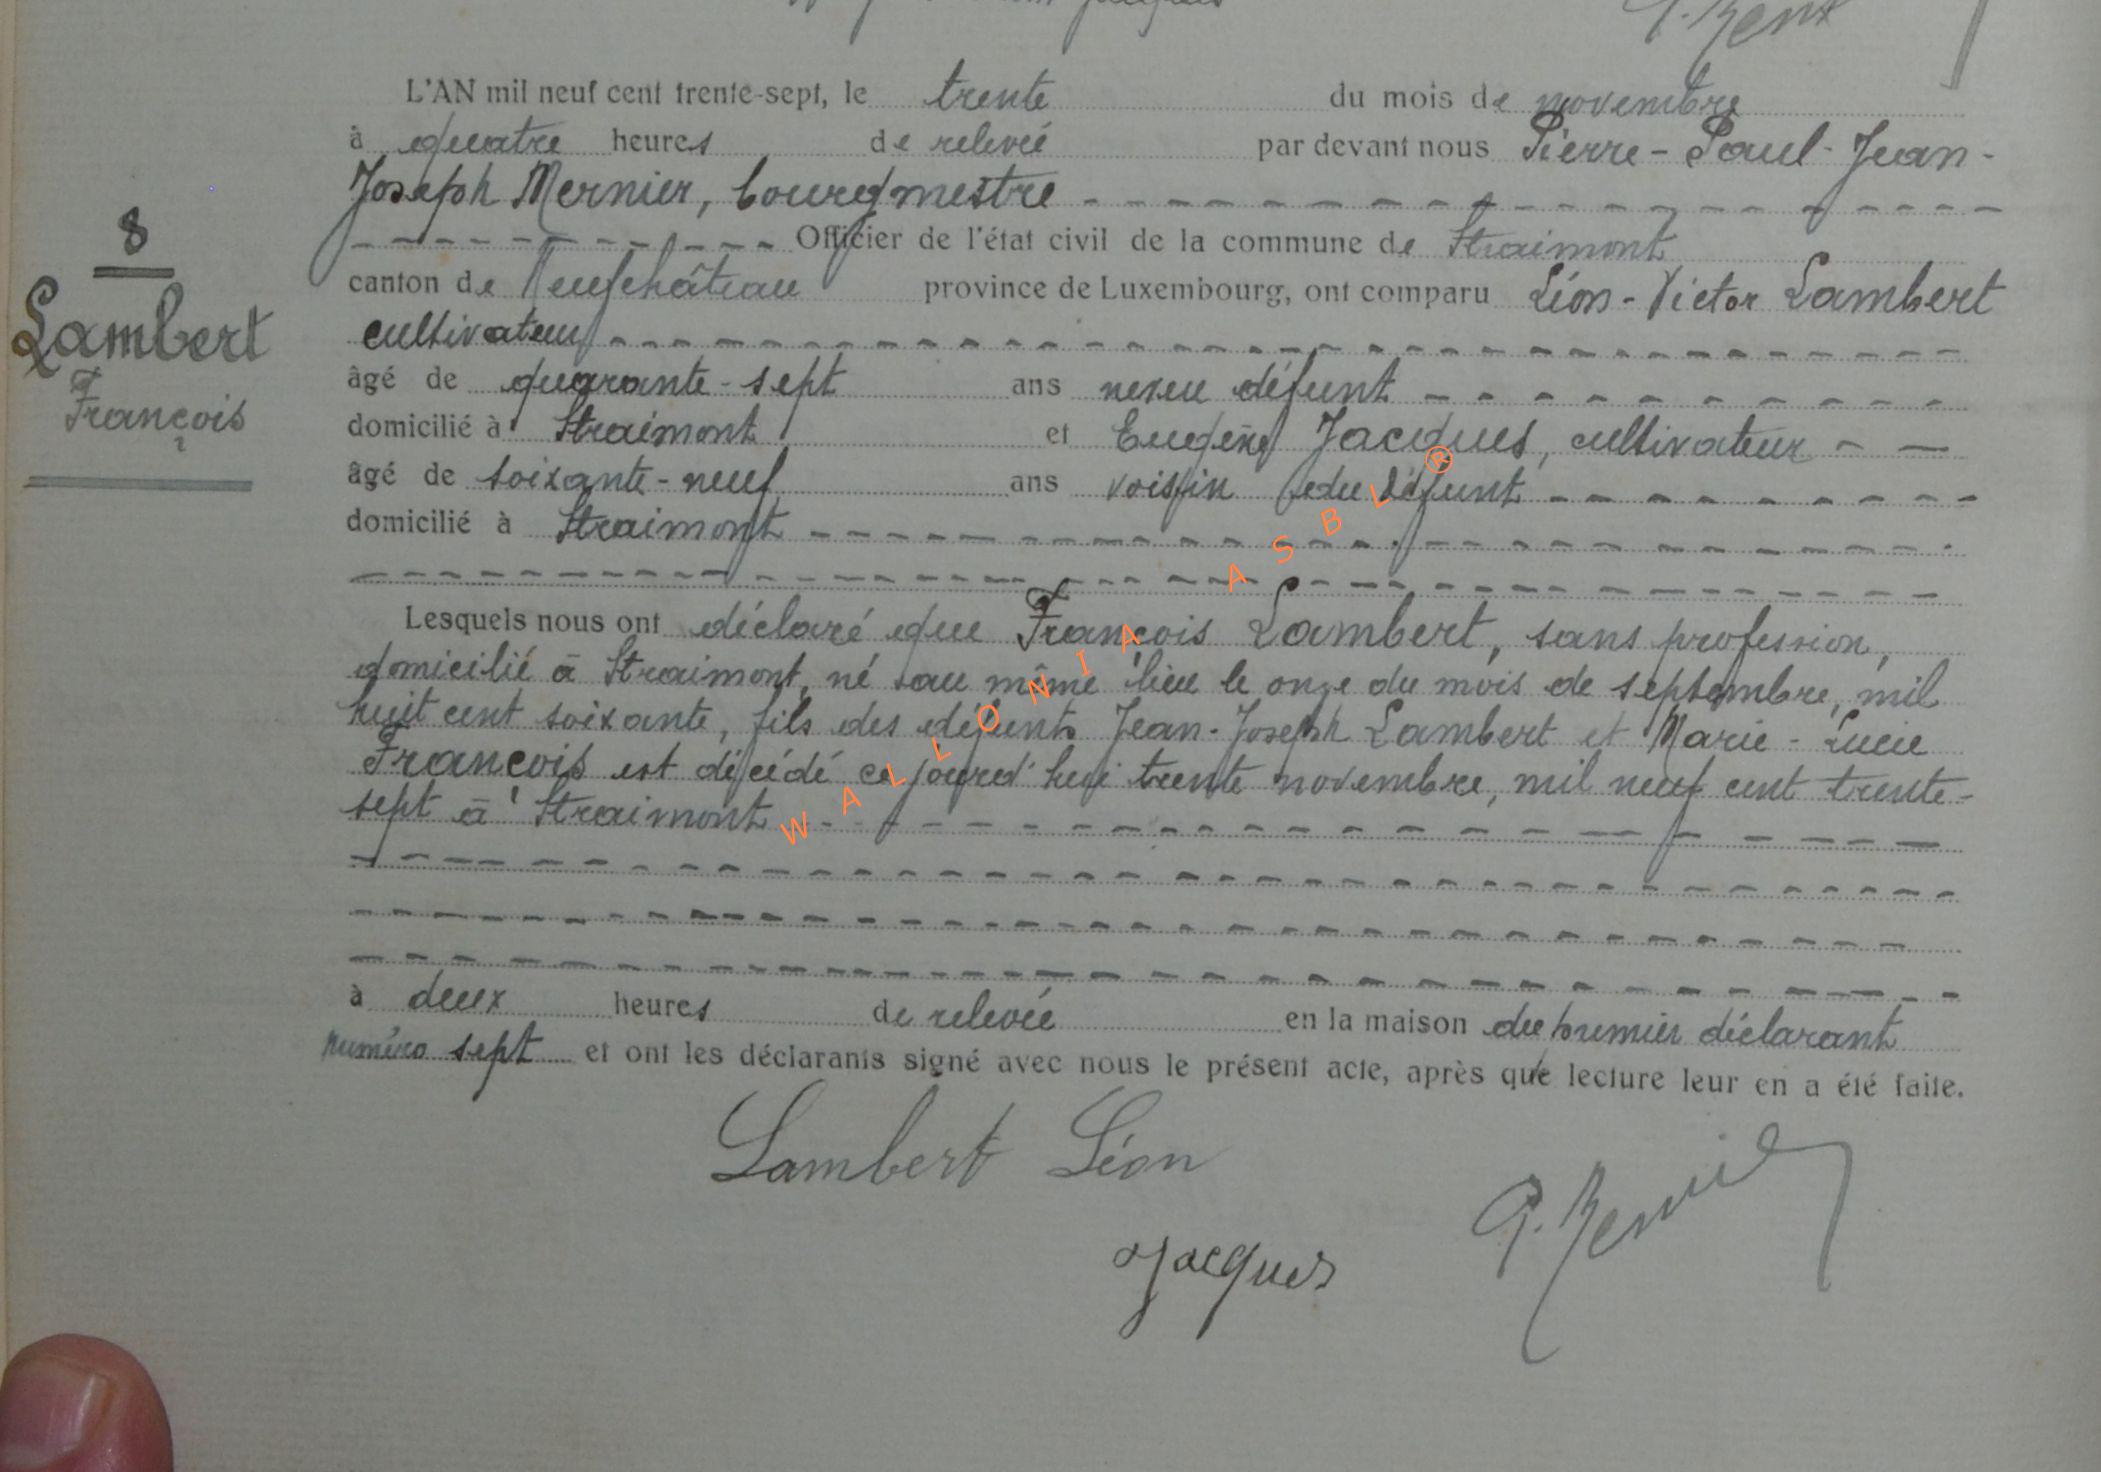 L'AN mil neuf cent trente-sept, le trente du mois de novembre
à quatre heures de relevée par devant nous Pierre-Paul-Jean-
Joseph Mernier, bourgmestre
Officier de l'état civil de la commune de Straimont
canton de Neufchâteau province de Luxembourg, ont comparu Léon-Victor Lambert
cultivateur
âgé de quarante-sept ans neveu défunt
domicilié à Straimont et Eugène Jacques, cultivateur
âgé de soixante-neuf ans voisin du défunt
domicilié à Straimont
8
Lambert
François
Lesquels nous ont déclaré que François Lambert, sans profession,
domicilié à Straimont, né au même lieu le onze du mois de septembre, mil
huit cent soixante, fils des défunts Jean-Joseph Lambert et Marie-Lucie
François est décédé ce jourd'hui trente novembre, mil neuf cent trente-
sept à Straimont
à deux heures de relevée en la maison du premier déclarant
numéro sept et ont les déclarants signé avec nous le présent acte, après que lecture leur en a été faite.
Lambert Léon
Jacques
P. Mernier
WALLONIA ASBL ®